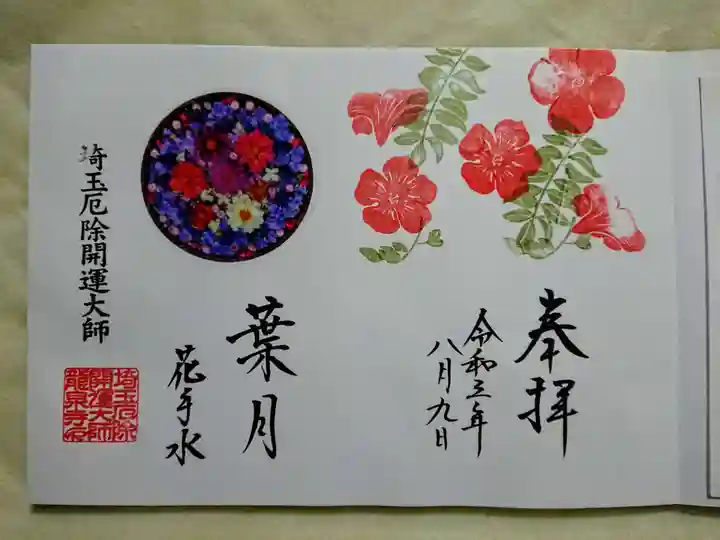 奉拝
令和三年
八月九日
葉月
花手水
埼玉厄除開運大師
埼玉厄除
開運大師
龍泉寺印